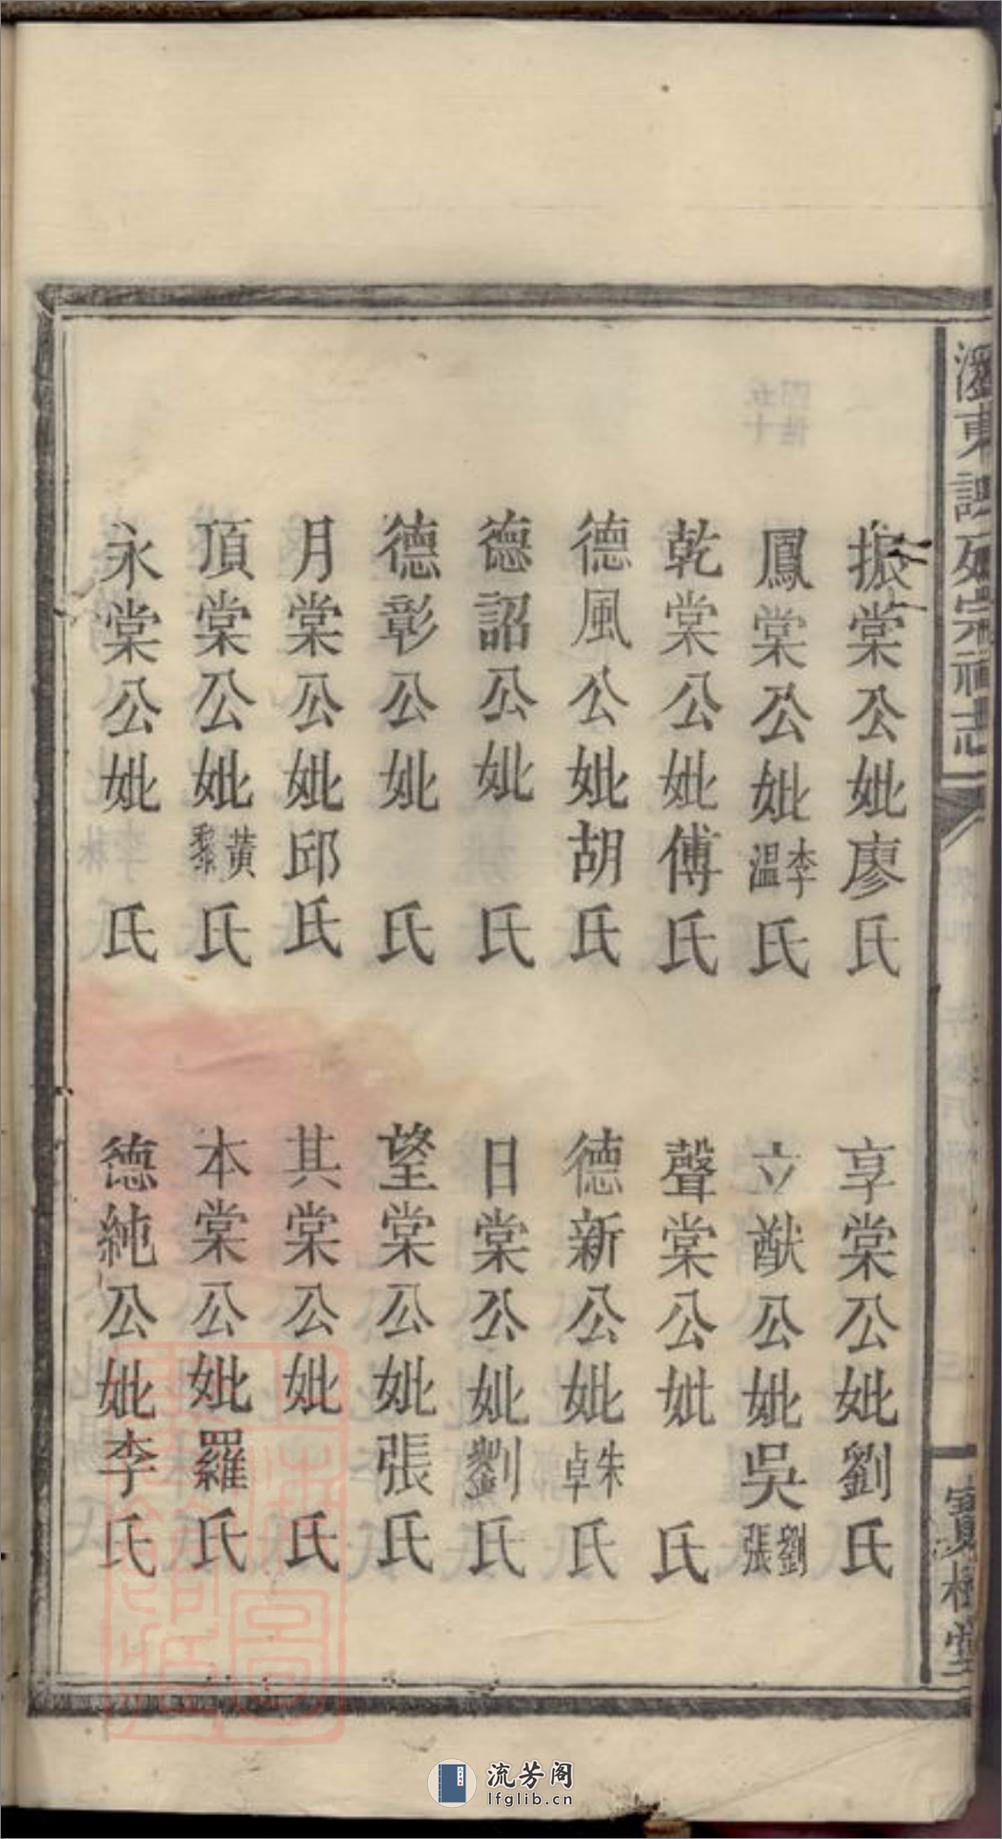 瀏東謝氏宗祠志
寶樹堂
振棠公妣廖氏
享棠公妣劉氏
鳳棠公妣李溫氏
立猷公妣吳劉張
乾棠公妣傅氏
聲棠公妣氏
德風公妣胡氏
德新公妣朱卓氏
德詔公妣氏
日棠公妣劉氏
德彰公妣氏
望棠公妣張氏
月棠公妣邱氏
其棠公妣氏
頂棠公妣黃黎氏
本棠公妣羅氏
永棠公妣氏
德純公妣李氏
流芳阁
lfglib.cn